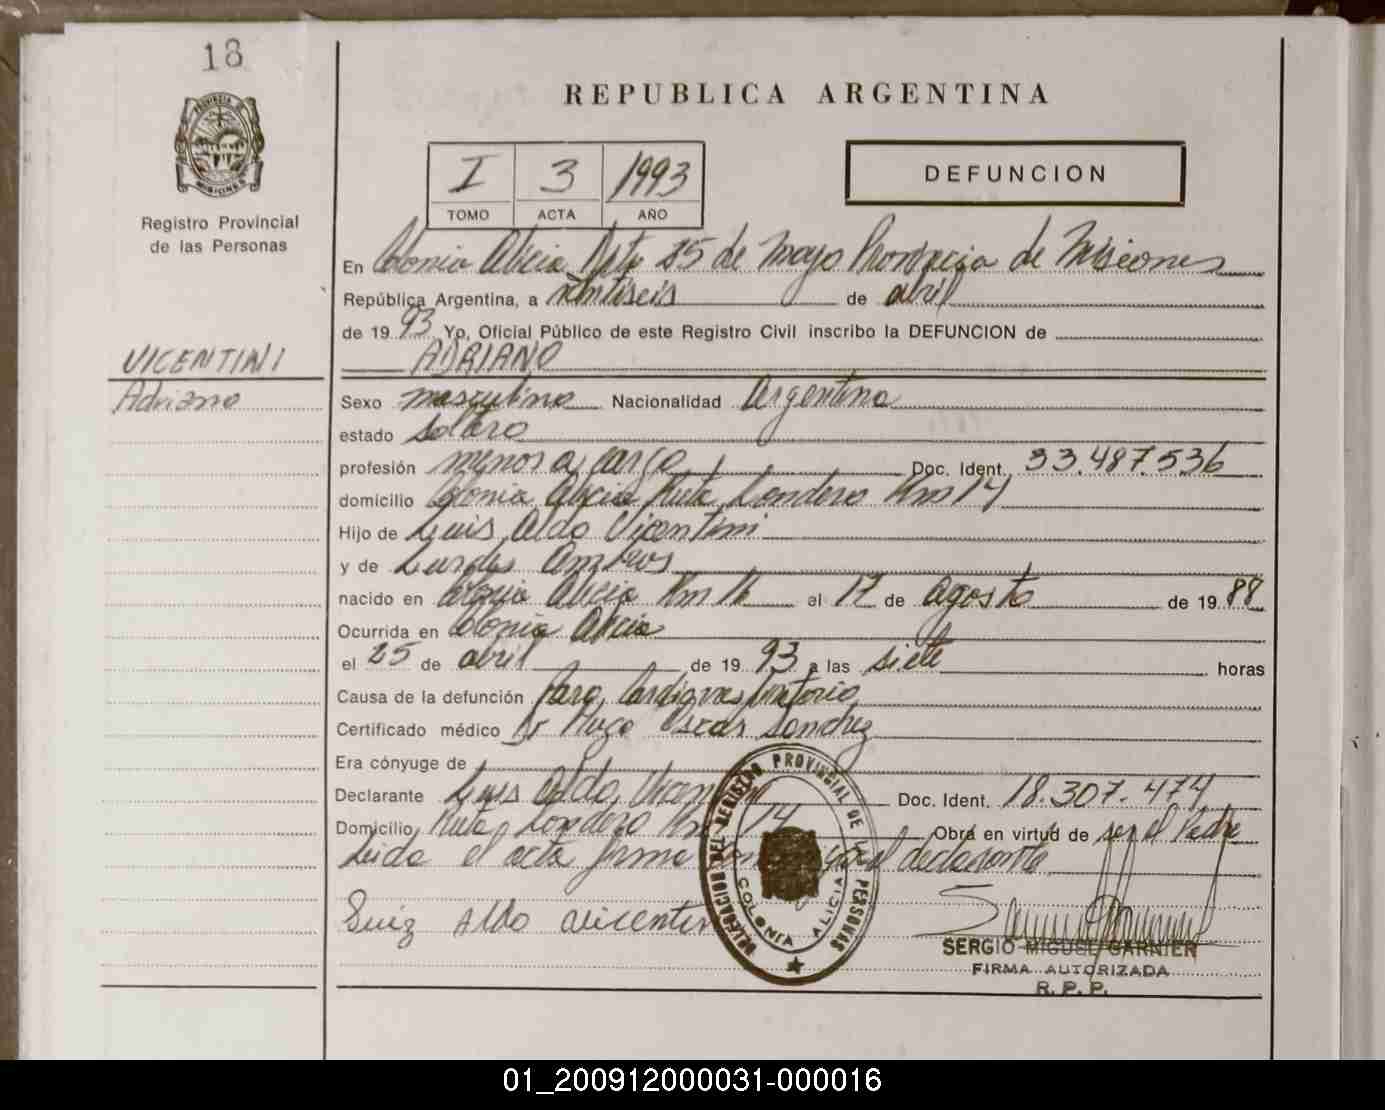 18
REPUBLICA ARGENTINA
PROVINCIA DE MISIONES
Registro Provincial
de las Personas
I 3 1993
TOMO ACTA AÑO
DEFUNCION
En Colonia Alicia Dpto 25 de Mayo Provincia de Misiones
República Argentina, a veintiseis de abril
de 1993 Yo, Oficial Público de este Registro Civil inscribo la DEFUNCION de
ADRIANO
VICENTINI
Adriano
Sexo masculino Nacionalidad Argentina
estado Soltero
profesión menor a cargo Doc. Ident. 33.487.536
domicilio Colonia Alicia Ruta Londero Km 14
Hijo de Luis Aldo Vicentini
y de Lurdes
nacido en Colonia Alicia Km 16 el 17 de Agosto de 1988
Ocurrida en Colonia Alicia
el 25 de abril de 1993 a las siete horas
Causa de la defunción Paro Cardiorrespiratorio
Certificado médico Dr Hugo Oscar Sanchez
Era cónyuge de
Declarante Luis Aldo Vicentini Doc. Ident. 18.307.474
Domicilio Ruta Londero Km 14 Obra en virtud de ser el Padre
Leida el acta firma conmigo el declarante
Luiz Aldo Vicentini
DELEGACION DEL REGISTRO PROVINCIAL DE LAS PERSONAS
COLONIA ALICIA
SERGIO MIGUEL GARNIER
FIRMA AUTORIZADA
R. P. P.
01_200912000031-000016